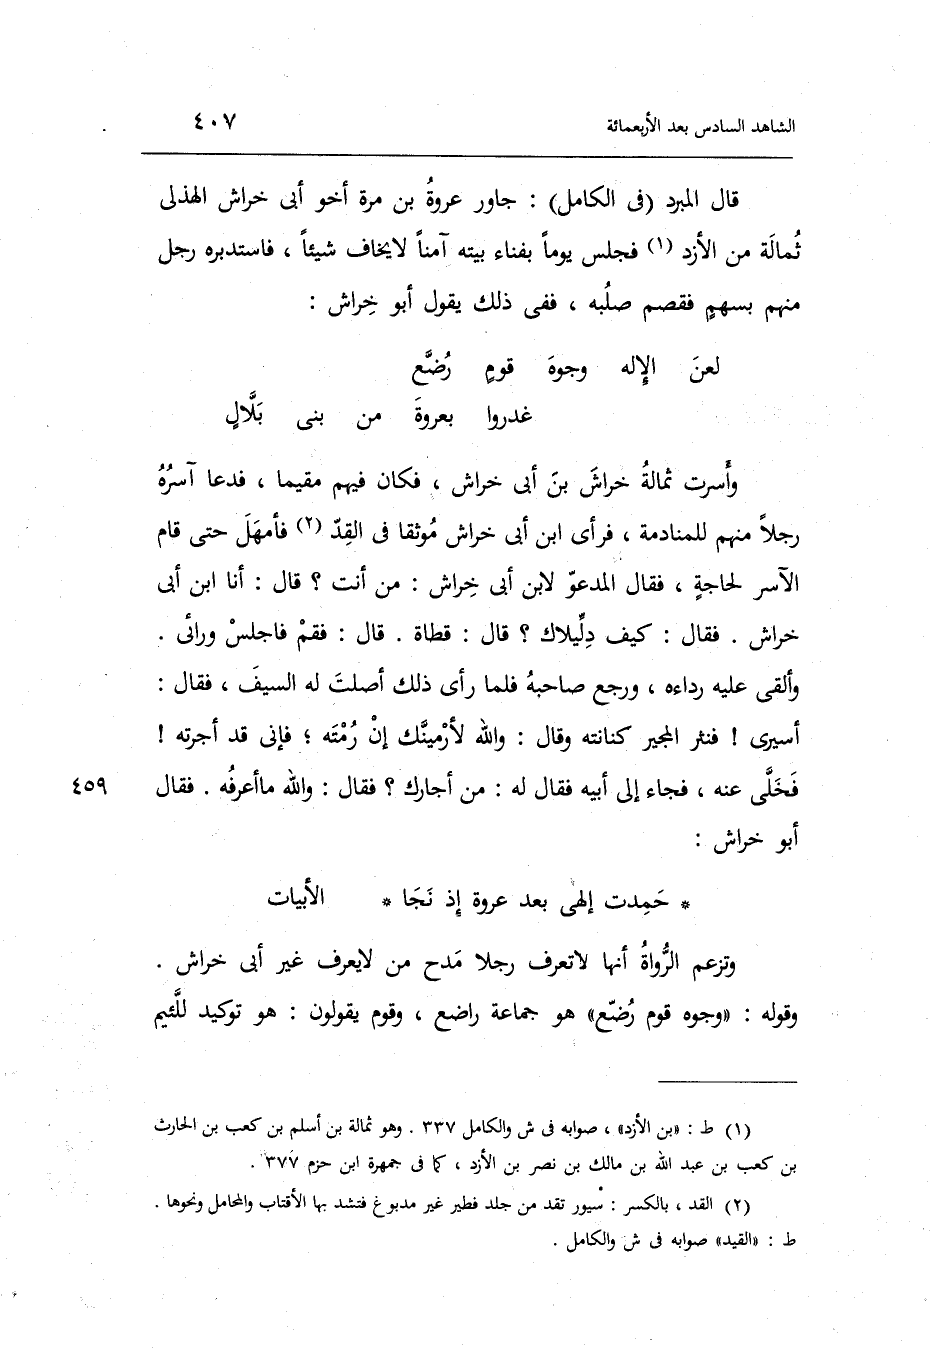 الشاهد السادس بعد الأربعمائة
٤٠٧
قال المبرد (فى الكامل) : جاور عروةُ بن مرة أخو أبى خراش الهذلى
ثُمالَة من الأزد (١) فجلس يوماً بفناء بيته آمناً لايخاف شيئاً ، فاستدبره رجل
منهم بسهمٍ فقصم صلُبه ، ففى ذلك يقول أبو خِراش :
لعنَ الإله وجوهَ قومٍ رُضَّع
غدروا بعروةَ من بنى بَلَّالِ
وأُسرت ثمالةُ خراشَ بنَ أبى خراش ، فكان فيهم مقيما ، فدعا آسرُهُ
رجلاً منهم للمنادمة ، فرأى ابن أبى خراش مُوثقا فى القِدّ (٢) فأمهَلَ حتى قام
الآسر لحاجةٍ ، فقال المدعوّ لابن أبى خِراش : من أنت ؟ قال : أنا ابن أبى
خراش . فقال : كيف دِلِّيلاك ؟ قال : قطاة . قال : فقمْ فاجلسْ ورائى .
وألقى عليه رداءه ، ورجع صاحبهُ فلما رأى ذلك أصلتَ له السيفَ ، فقال :
أسيرى ! فنثر المجير كنانته وقال : والله لأرْمينَّك إنْ رُمْتَه ؛ فإنى قد أجرته !
فَخَلَّى عنه ، فجاء إلى أبيه فقال له : من أجارك ؟ فقال : والله ماأعرفُه . فقال
٤٥٩
أبو خراش :
* حَمِدت إلهٰى بعد عروة إذ نَجَا * الأبيات
وتزعم الرُّواةُ أنها لاتعرف رجلا مَدح من لايعرف غير أبى خراش .
وقوله : «وجوه قوم رُضّع» هو جماعة راضع ، وقوم يقولون : هو توكيد للَّئيم
(١) ط : «بن الأزد» ، صوابه فى ش والكامل ٣٣٧ . وهو ثمالة بن أسلم بن كعب بن الحارث
بن كعب بن عبد الله بن مالك بن نصر بن الأزد ، كما فى جمهرة ابن حزم ٣٧٧ .
(٢) القد ، بالكسر : سيور تقد من جلد فطير غير مدبوغ فتشد بها الأقتاب والمحامل ونحوها .
ط : «القيد» صوابه فى ش والكامل .